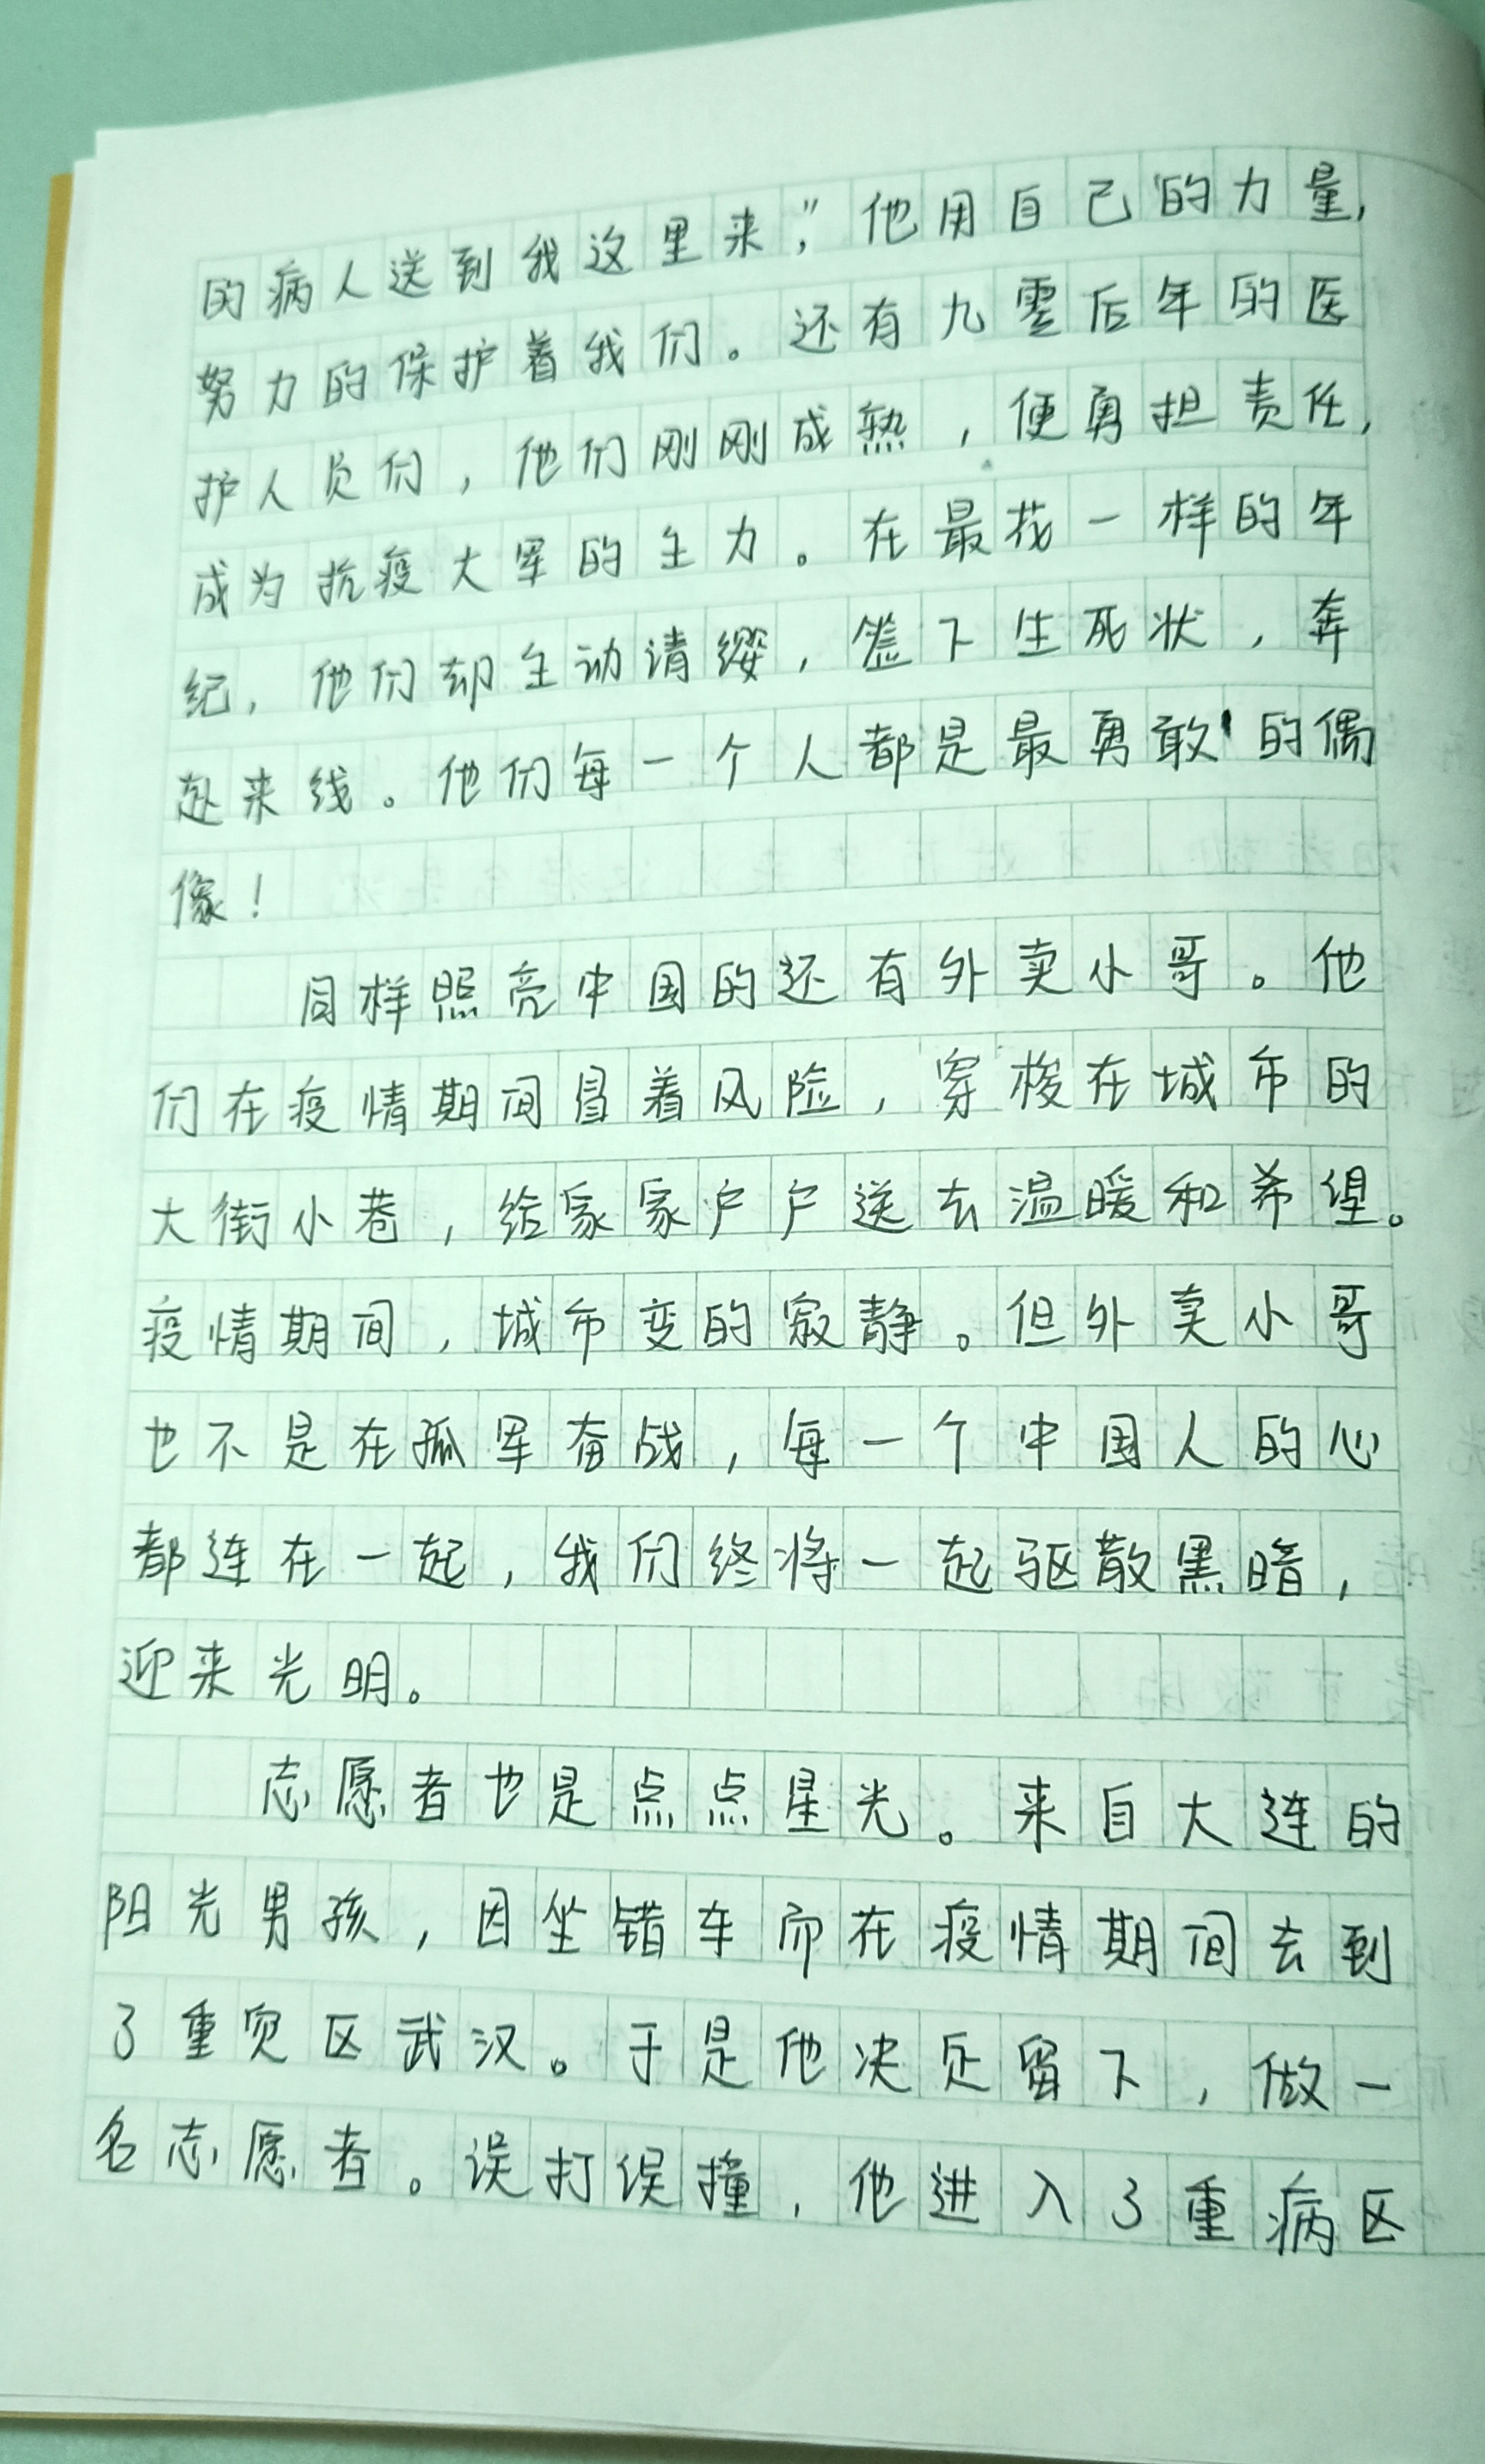 的病人送到我这里来,”他用自己的力量,
努力的保护着我们。还有九零后年的医
护人员们，他们刚刚成熟，便勇担责任,
成为抗疫大军的主力。在最花一样的年
纪，他们却主动请缨，签下生死状，奔
赴来线。他们每一个人都是最勇敢的偶
像！
同样照亮中国的还有外卖小哥。他
们在疫情期间冒着风险，穿梭在城市的
大街小巷，给家家户户送去温暖和希望。
疫情期间，城市变的寂静。但外卖小哥
也不是在孤军奋战，每一个中国人的心
都连在一起，我们终将一起驱散黑暗，
迎来光明。
志愿者也是点点星光。来自大连的
阳光男孩，因坐错车而在疫情期间去到
了重灾区武汉。于是他决定留下，做一
名志愿者。误打误撞，他进入了重病区